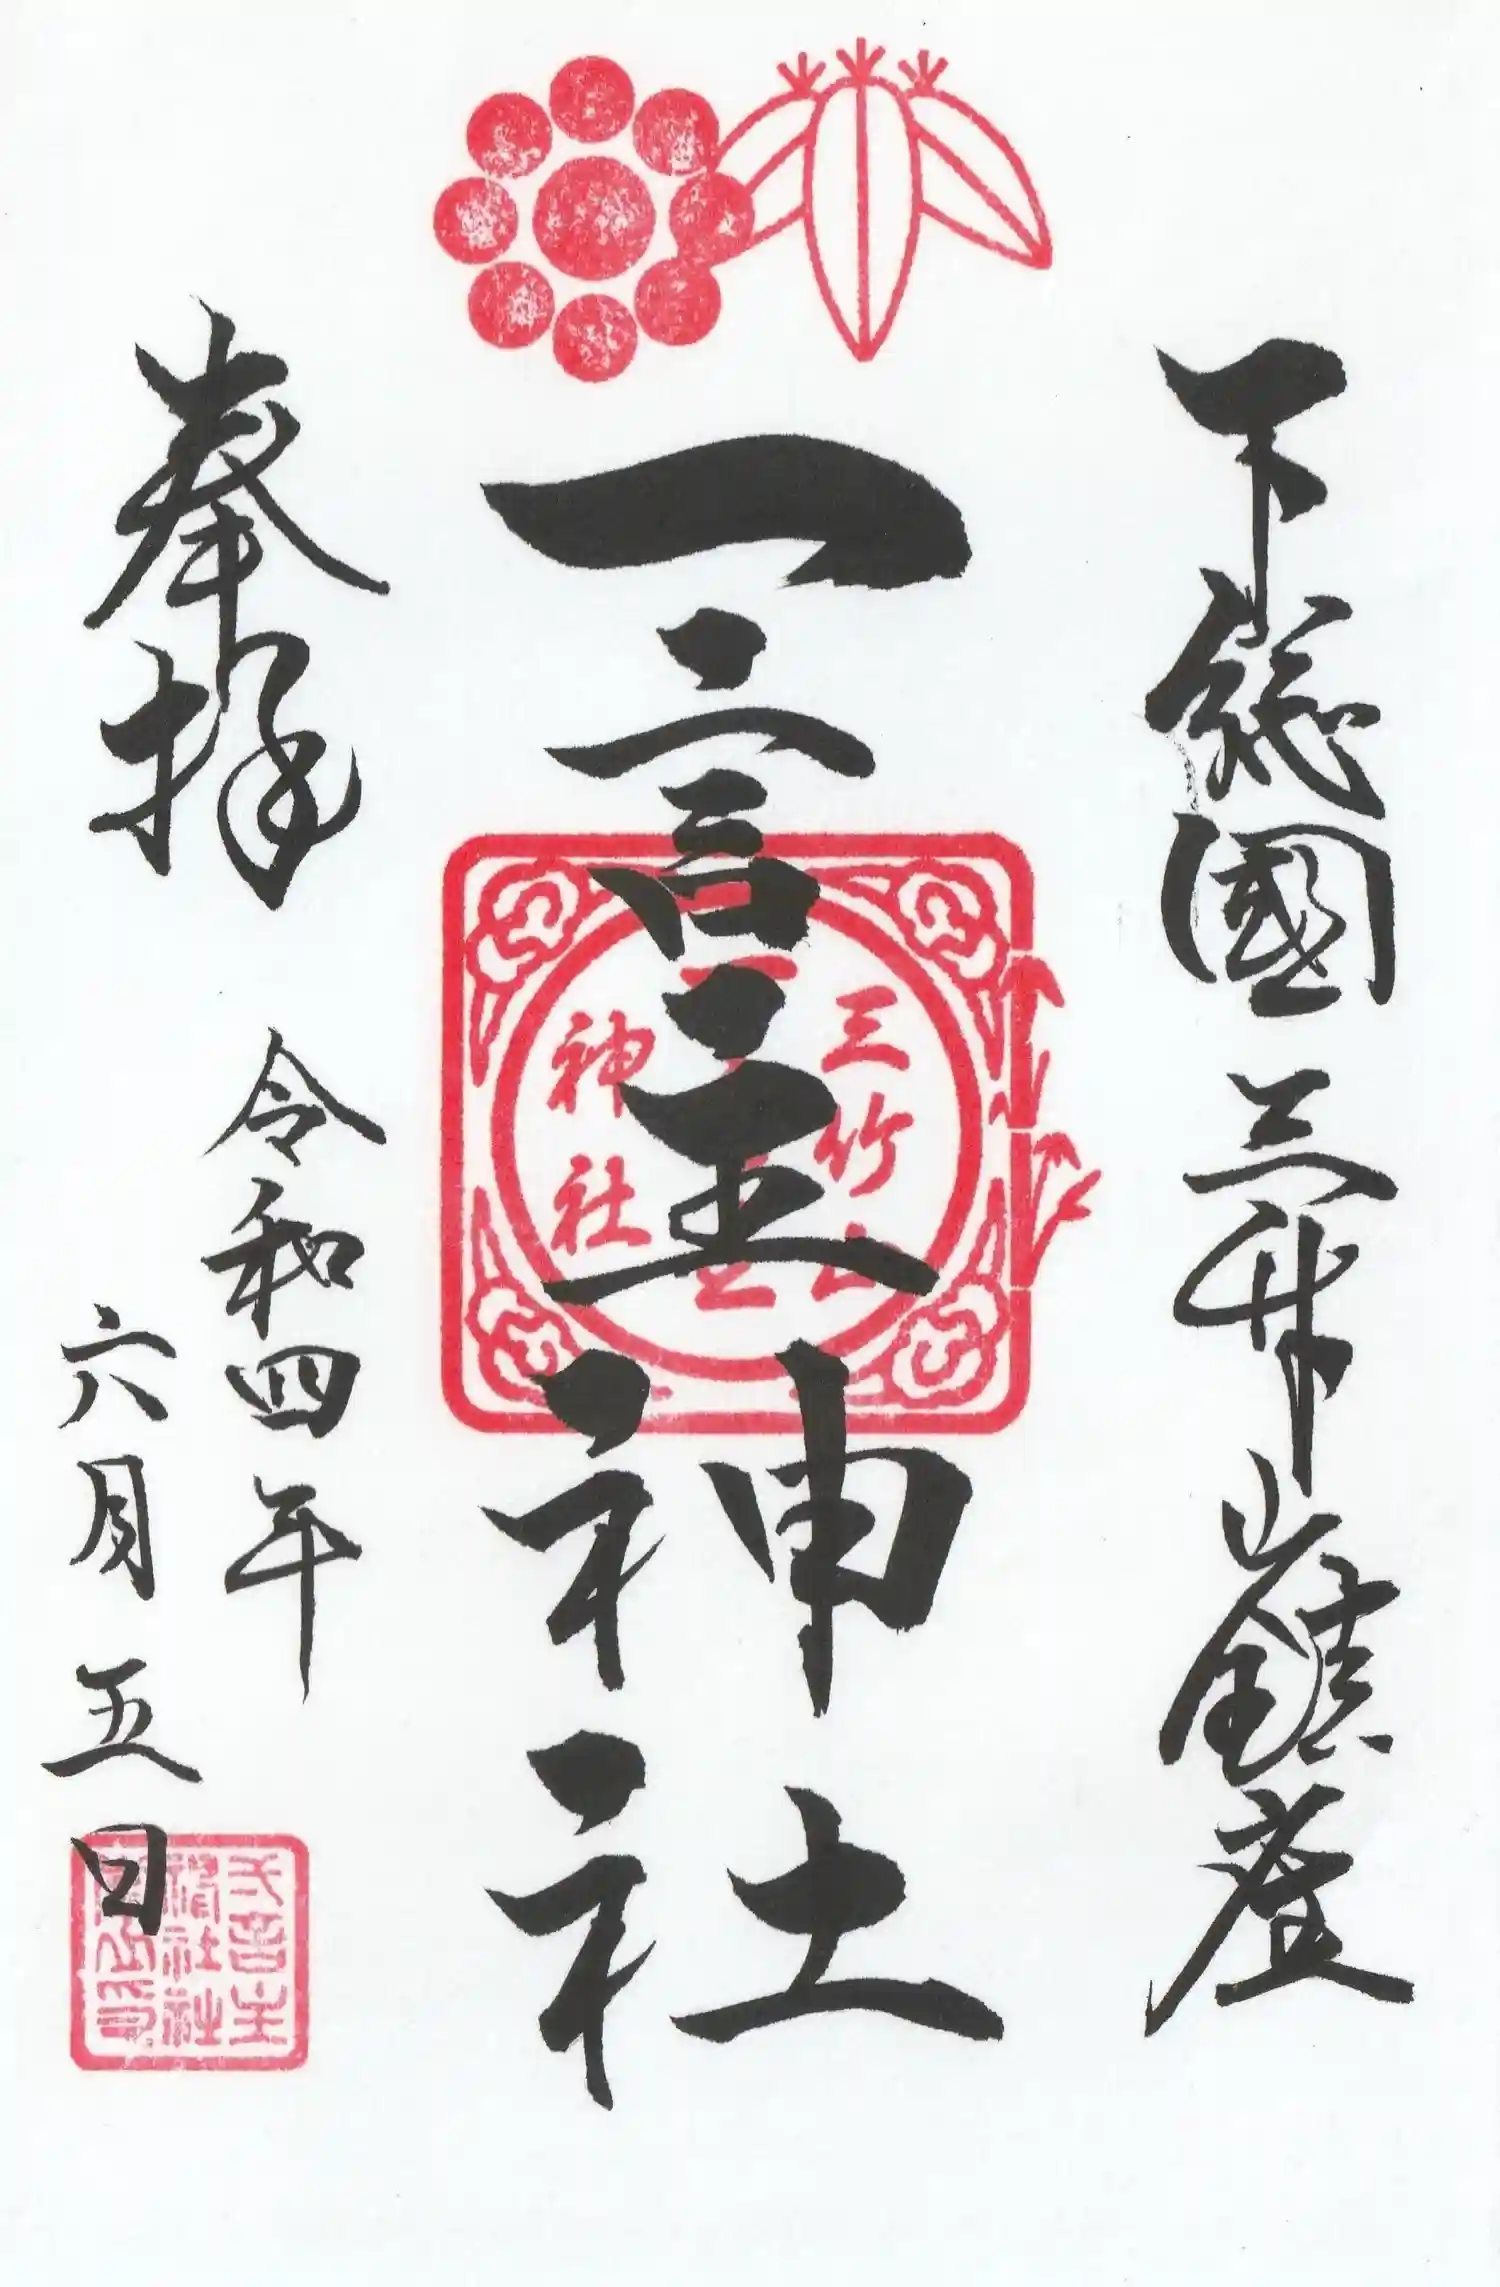 下総國三竹山鎮座
一言主神社
三竹山
一言主
神社
奉拝
令和四年
六月五日